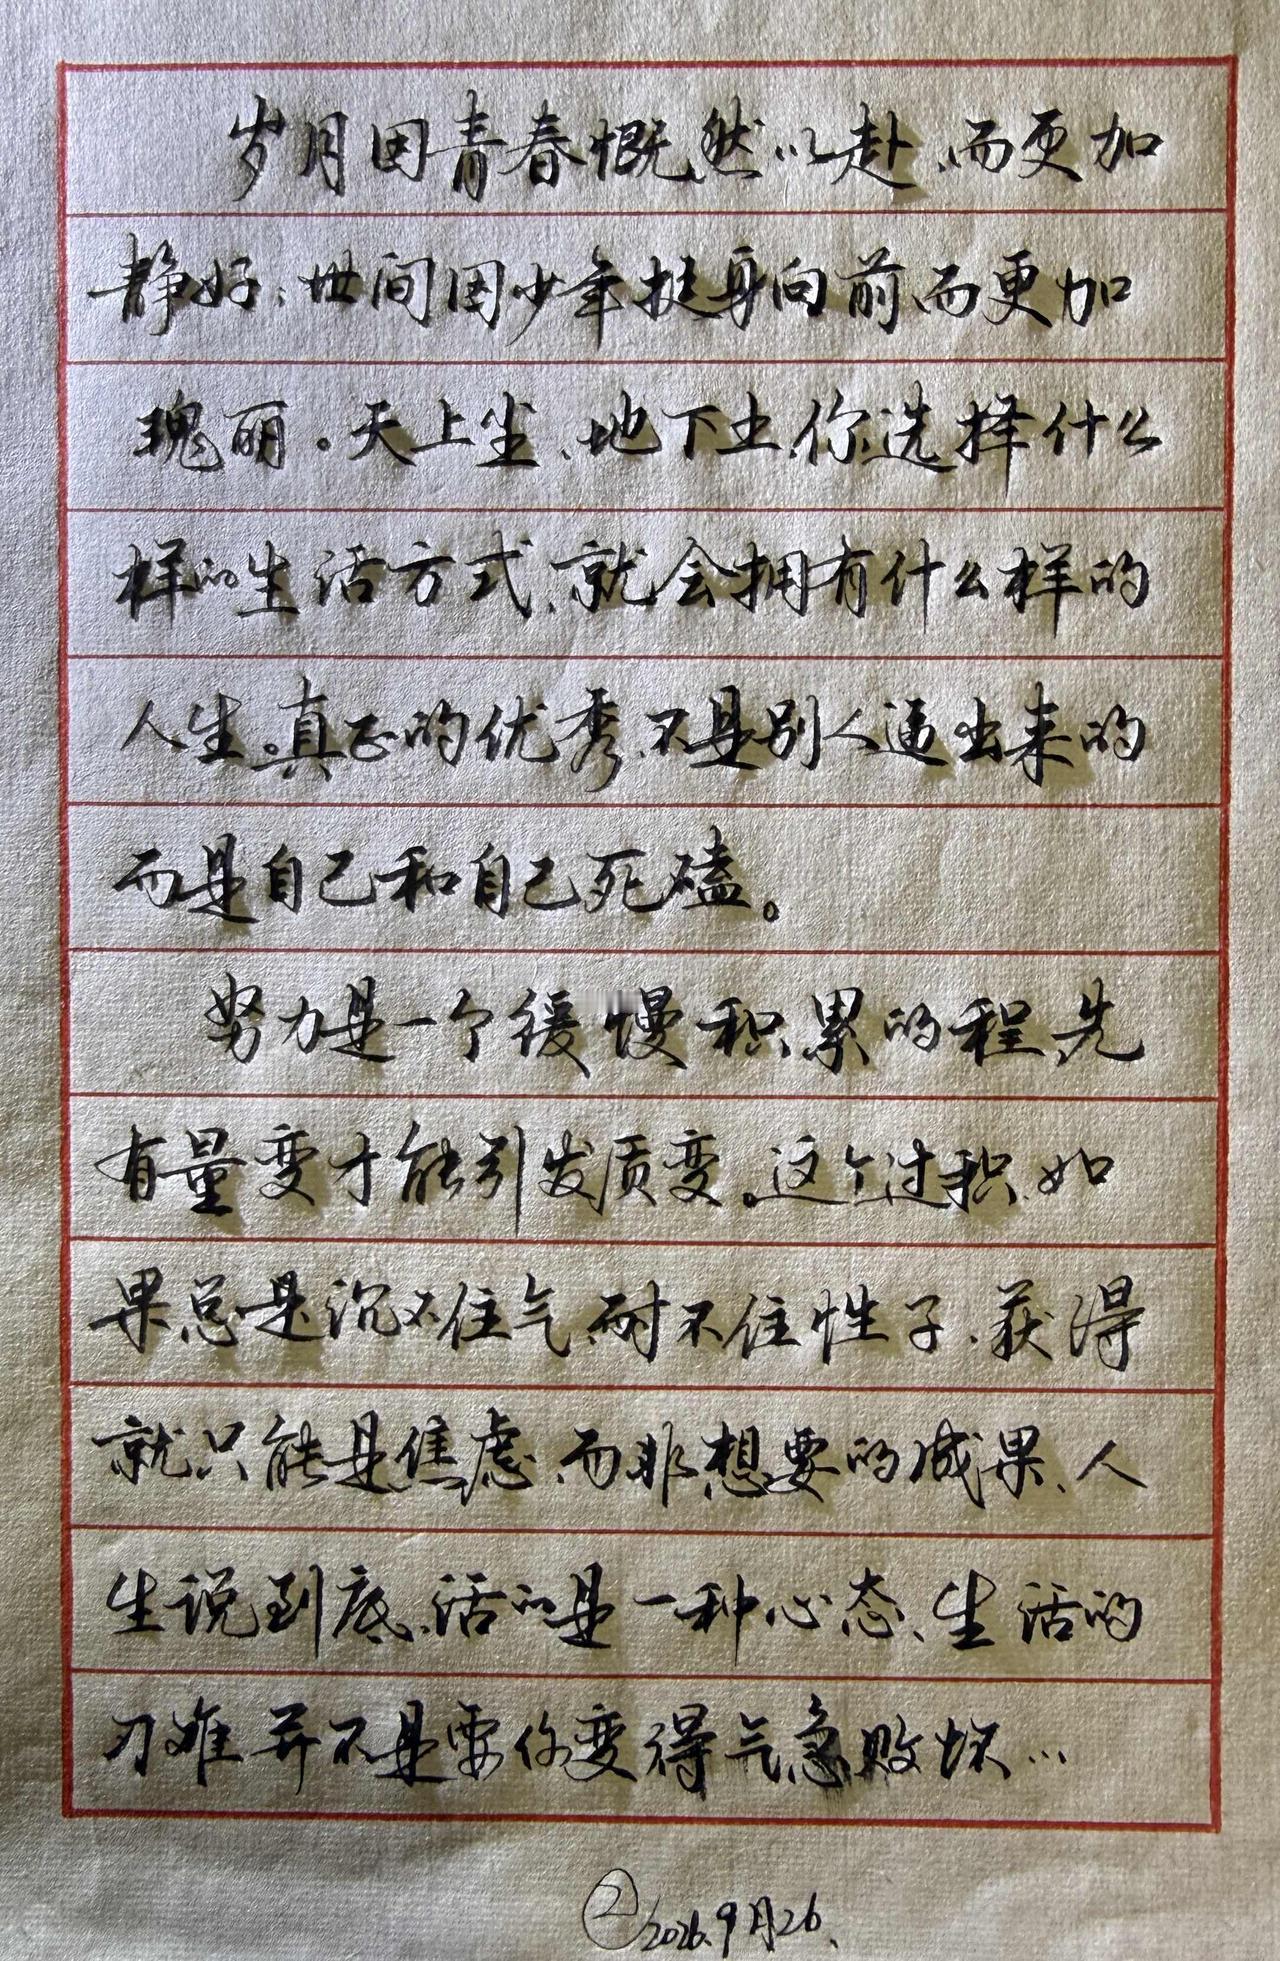 岁月因青春慨然以赴、而更加
静好；世间因少年挺身向前而更加
瑰丽。天上尘、地下土、你选择什么
样的生活方式、就会拥有什么样的
人生。真正的优秀、不是别人逼出来的
而是自己和自己死磕。
努力是一个缓慢积累的程、先
有量变才能引发质变。这个过积、如
果总是沉不住气、耐不住性子、获得
就只能是焦虑、而非想要的成果、人
生说到底、活的是一种心态、生活的
刁难并不是要你变得气急败坏…
② 2026.9月26、